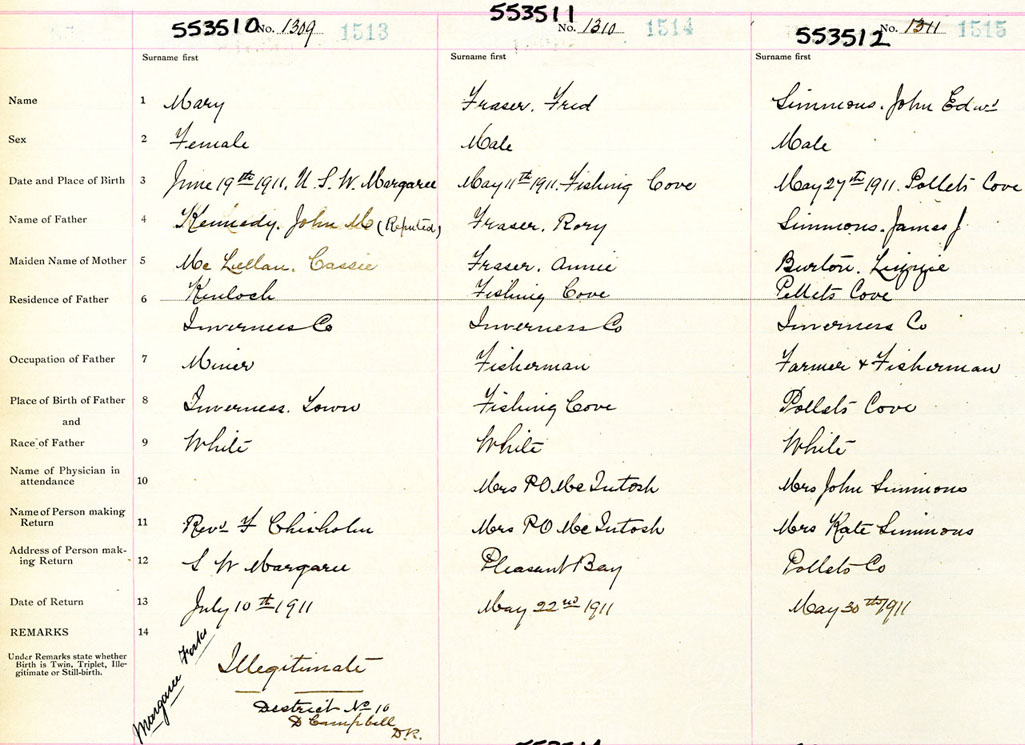 553510 No. 1309 1513
553511 No. 1310 1514
553512 No. 1311 1515
Surname first Surname first Surname first
Name 1 Mary Fraser, Fred Simmons, John Edwd
Sex 2 Female Male Male
Date and Place of Birth 3 June 19th 1911, U. S. W. Margaree May 11th 1911, Fishing Cove May 27th 1911. Pollets Cove
Name of Father 4 Kennedy, John (Reputed) Fraser, Rory Simmons, James J
Maiden Name of Mother 5 Mc Lellan, Cassie Fraser, Annie Burton, Lizzie
Residence of Father 6 Kinloch Fishing Cove Pollets Cove
Inverness Co Inverness Co Inverness Co
Occupation of Father 7 Miner Fisherman Farmer & Fisherman
Place of Birth of Father 8 Inverness. Town Fishing Cove Pollets Cove
and
Race of Father 9 White White White
Name of Physician in
attendance 10 Mrs P O McIntosh Mrs John Simmons
Name of Person making
Return 11 Revd F Chisholm Mrs P O McIntosh Mrs Kate Simmons
Address of Person mak-
ing Return 12 S W Margaree Pleasant Bay Pollets Co
Date of Return 13 July 10th 1911 May 22nd 1911 May 30th 1911
REMARKS 14
Under Remarks state whether
Birth is Twin, Triplet, Ille-
gitimate or Still-birth.
Margaree Forks
Illegitimate
District No 10
D Campbell
D.R.